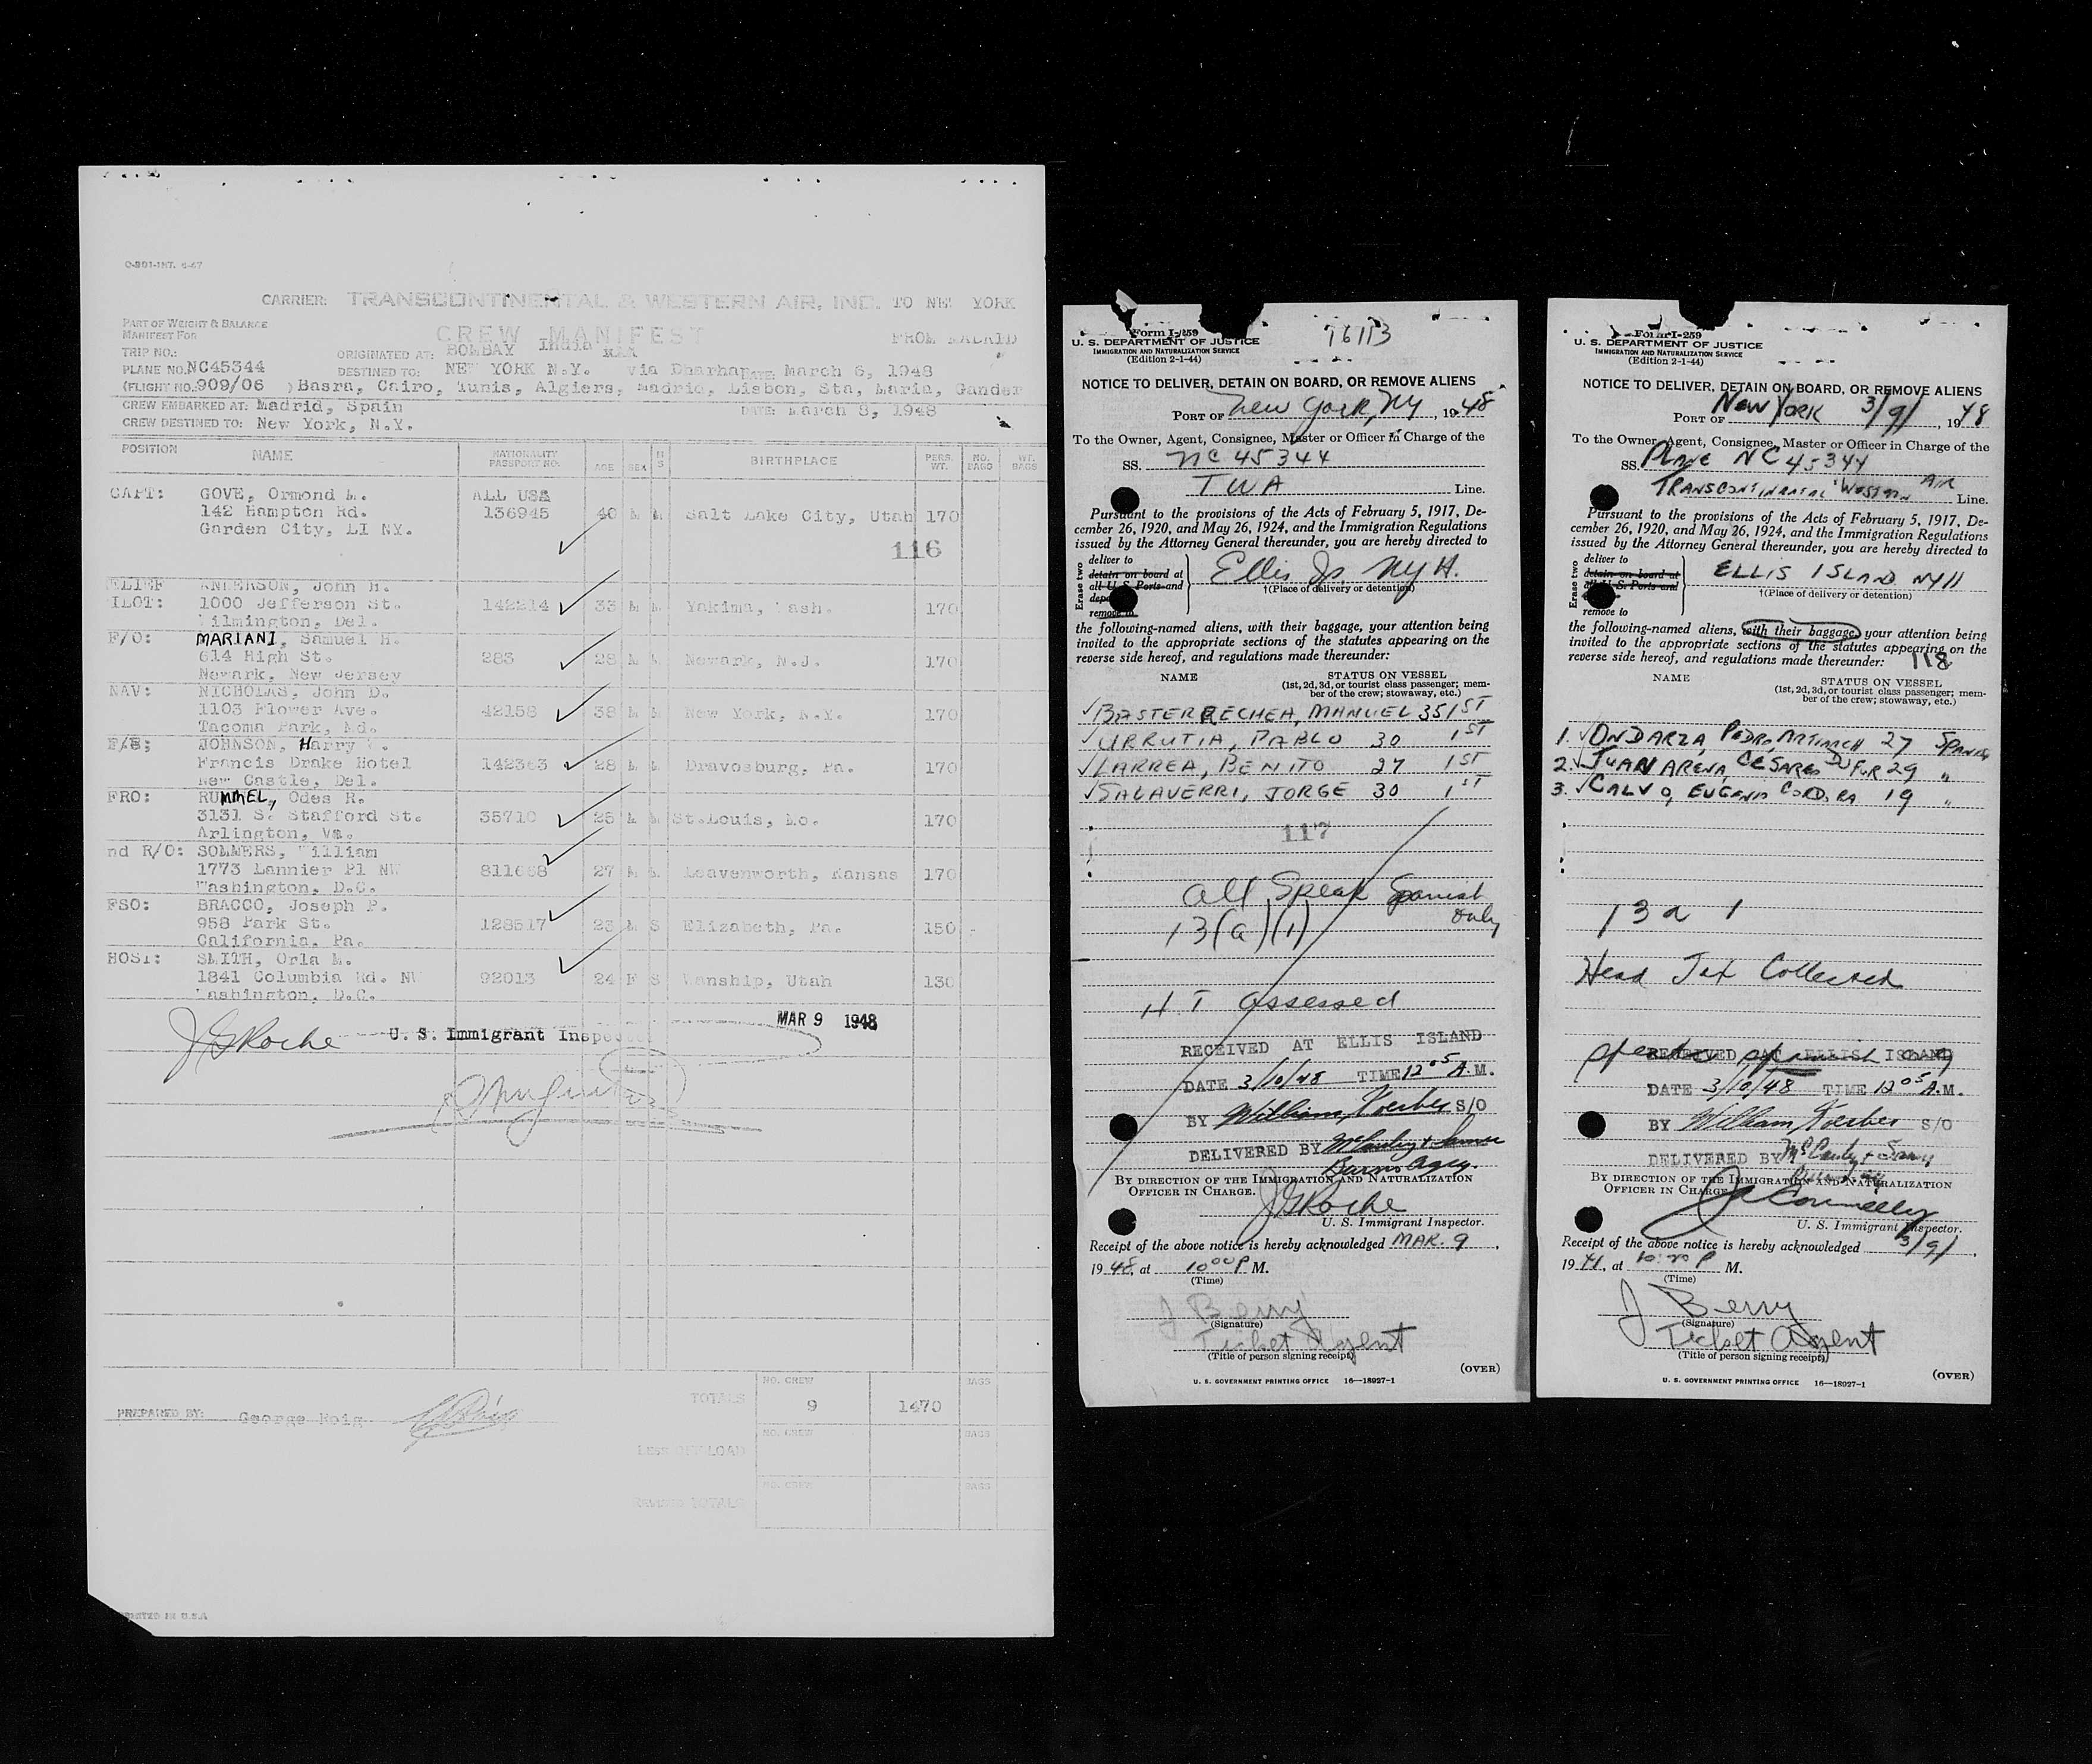 O-801-INT. 6-47
CARRIER: TRANSCONTINENTAL & WESTERN AIR, INC. TO NEW YORK
PART OF WEIGHT & BALANCE
MANIFEST FOR
CREW MANIFEST FROM MADRID
TRIP NO.: ORIGINATED AT: BOMBAY India
PLANE NO. NC45344 DESTINED TO: NEW YORK N.Y. via Dharhan DATE: March 6, 1948
(FLIGHT NO. 909/06 ) Basra, Cairo, Tunis, Algiers, Madrid, Lisbon, Sta, Maria, Gander
CREW EMBARKED AT: Madrid, Spain DATE: March 8, 1948
CREW DESTINED TO: New York, N.Y.
POSITION NAME NATIONALITY PASSPORT NO. AGE SEX M S BIRTHPLACE PERS. WT. NO. BAGS WT. BAGS
CAPT: GOVE, Ormond M. ALL USA
142 Hampton Rd. 136945 40 M M Salt Lake City, Utah 170
Garden City, LI NY.
116
ELIEF ANDERSON, John H.
ILOT: 1000 Jefferson St. 142214 33 M M Yakima, Wash. 170
Wilmington, Del.
F/O: MARIANI, Samuel H.
614 High St. 283 28 M M Newark, N.J. 170
Newark, New Jersey
NAV: NICHOLAS, John D.
1103 Flower Ave. 42158 38 M M New York, N.Y. 170
Tacoma Park, Md.
F/E; JOHNSON, Harry
Francis Drake Hotel 142363 28 M M Dravosburg, Pa. 170
New Castle, Del.
FRO: RUMMEL, Odes R.
3131 S. Stafford St. 35710 25 M M St.Louis, Mo. 170
Arlington, Va.
nd R/O: SOMMERS, William
1773 Lannier Pl NW 811668 27 M M Leavenworth, Kansas 170
Washington, D.C.
FSO: BRACCO, Joseph P.
958 Park St. 128517 23 M S Elizabeth, Pa. 150
California, Pa.
HOST: SMITH, Orla M.
1841 Columbia Rd. NW 92013 24 F S Wanship, Utah 130
Washington, D.C.
MAR 9 1948
J G Roche U. S. Immigrant Inspector
TOTALS NO. CREW 9 1470 BAGS
PREPARED BY: George Roig
LESS OFFLOAD NO. CREW BAGS
REVISED TOTALS NO. CREW BAGS
PRINTED IN U.S.A
Form I-259
76113
U. S. DEPARTMENT OF JUSTICE
IMMIGRATION AND NATURALIZATION SERVICE
(Edition 2-1-44)
NOTICE TO DELIVER, DETAIN ON BOARD, OR REMOVE ALIENS
PORT OF New York, NY, 1948
To the Owner, Agent, Consignee, Master or Officer in Charge of the
SS. NC 45344
TWA Line.
Pursuant to the provisions of the Acts of February 5, 1917, De-
cember 26, 1920, and May 26, 1924, and the Immigration Regulations
issued by the Attorney General thereunder, you are hereby directed to
Erase two
deliver to
detain on board at
all U. S. Ports and
remove to
Ellis Is. NYH.
†(Place of delivery or detention)
the following-named aliens, with their baggage, your attention being
invited to the appropriate sections of the statutes appearing on the
reverse side hereof, and regulations made thereunder:
NAME STATUS ON VESSEL
(1st, 2d, 3d, or tourist class passenger; mem-
ber of the crew; stowaway, etc.)
✓BASTERRECHEA, MANUEL 35 1ST
✓URRUTIA, PABLO 30 1ST
✓LARREA, BENITO 27 1ST
✓SALAVERRI, JORGE 30 1ST
117
all Speak Spanish
only
13(a)(1)
H T assessed
RECEIVED AT ELLIS ISLAND
DATE 3/10/48 TIME 12 05 A.M.
BY William Koerber S/O
DELIVERED BY
Burns Agcy.
BY DIRECTION OF THE IMMIGRATION AND NATURALIZATION
OFFICER IN CHARGE.
J G Roche
U. S. Immigrant Inspector.
Receipt of the above notice is hereby acknowledged MAR. 9,
1948, at 10 00 P M.
(Time)
J Berry
(Signature)
Ticket Agent
(Title of person signing receipt)
(OVER)
U. S. GOVERNMENT PRINTING OFFICE 16—18927-1
Form I-259
U. S. DEPARTMENT OF JUSTICE
IMMIGRATION AND NATURALIZATION SERVICE
(Edition 2-1-44)
NOTICE TO DELIVER, DETAIN ON BOARD, OR REMOVE ALIENS
PORT OF NEW YORK 3/9/, 1948
To the Owner, Agent, Consignee, Master or Officer in Charge of the
SS. PLANE NC 45344
TRANSCONTINENTAL WESTERN AIR Line.
Pursuant to the provisions of the Acts of February 5, 1917, De-
cember 26, 1920, and May 26, 1924, and the Immigration Regulations
issued by the Attorney General thereunder, you are hereby directed to
Erase two
deliver to
detain on board at
all U. S. Ports and
remove to
ELLIS ISLAND NYH
†(Place of delivery or detention)
the following-named aliens, with their baggage, your attention being
invited to the appropriate sections of the statutes appearing on the
reverse side hereof, and regulations made thereunder: 118
NAME STATUS ON VESSEL
(1st, 2d, 3d, or tourist class passenger; mem-
ber of the crew; stowaway, etc.)
1. ✓ONDARZA, PEDRO 27
2. ✓JUAN ARENA, CESAREO DUFUR 29 "
3. ✓CALVO, EUGENIO 19 "
13a 1
Head Tax Collected
speaks spanish only
RECEIVED AT ELLIS ISLAND
DATE 3/10/48 TIME 12 05 A.M.
BY William Koerber S/O
DELIVERED BY
BY DIRECTION OF THE IMMIGRATION AND NATURALIZATION
OFFICER IN CHARGE.
Connelly
U. S. Immigrant Inspector.
Receipt of the above notice is hereby acknowledged 3/9/,
19 , at P M.
(Time)
J Berry
(Signature)
Ticket Agent
(Title of person signing receipt)
(OVER)
U. S. GOVERNMENT PRINTING OFFICE 16—18927-1